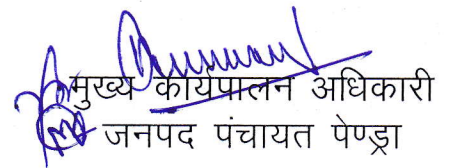 मुख्य कार्यपालन अधिकारी
जनपद पंचायत पेण्ड्रा